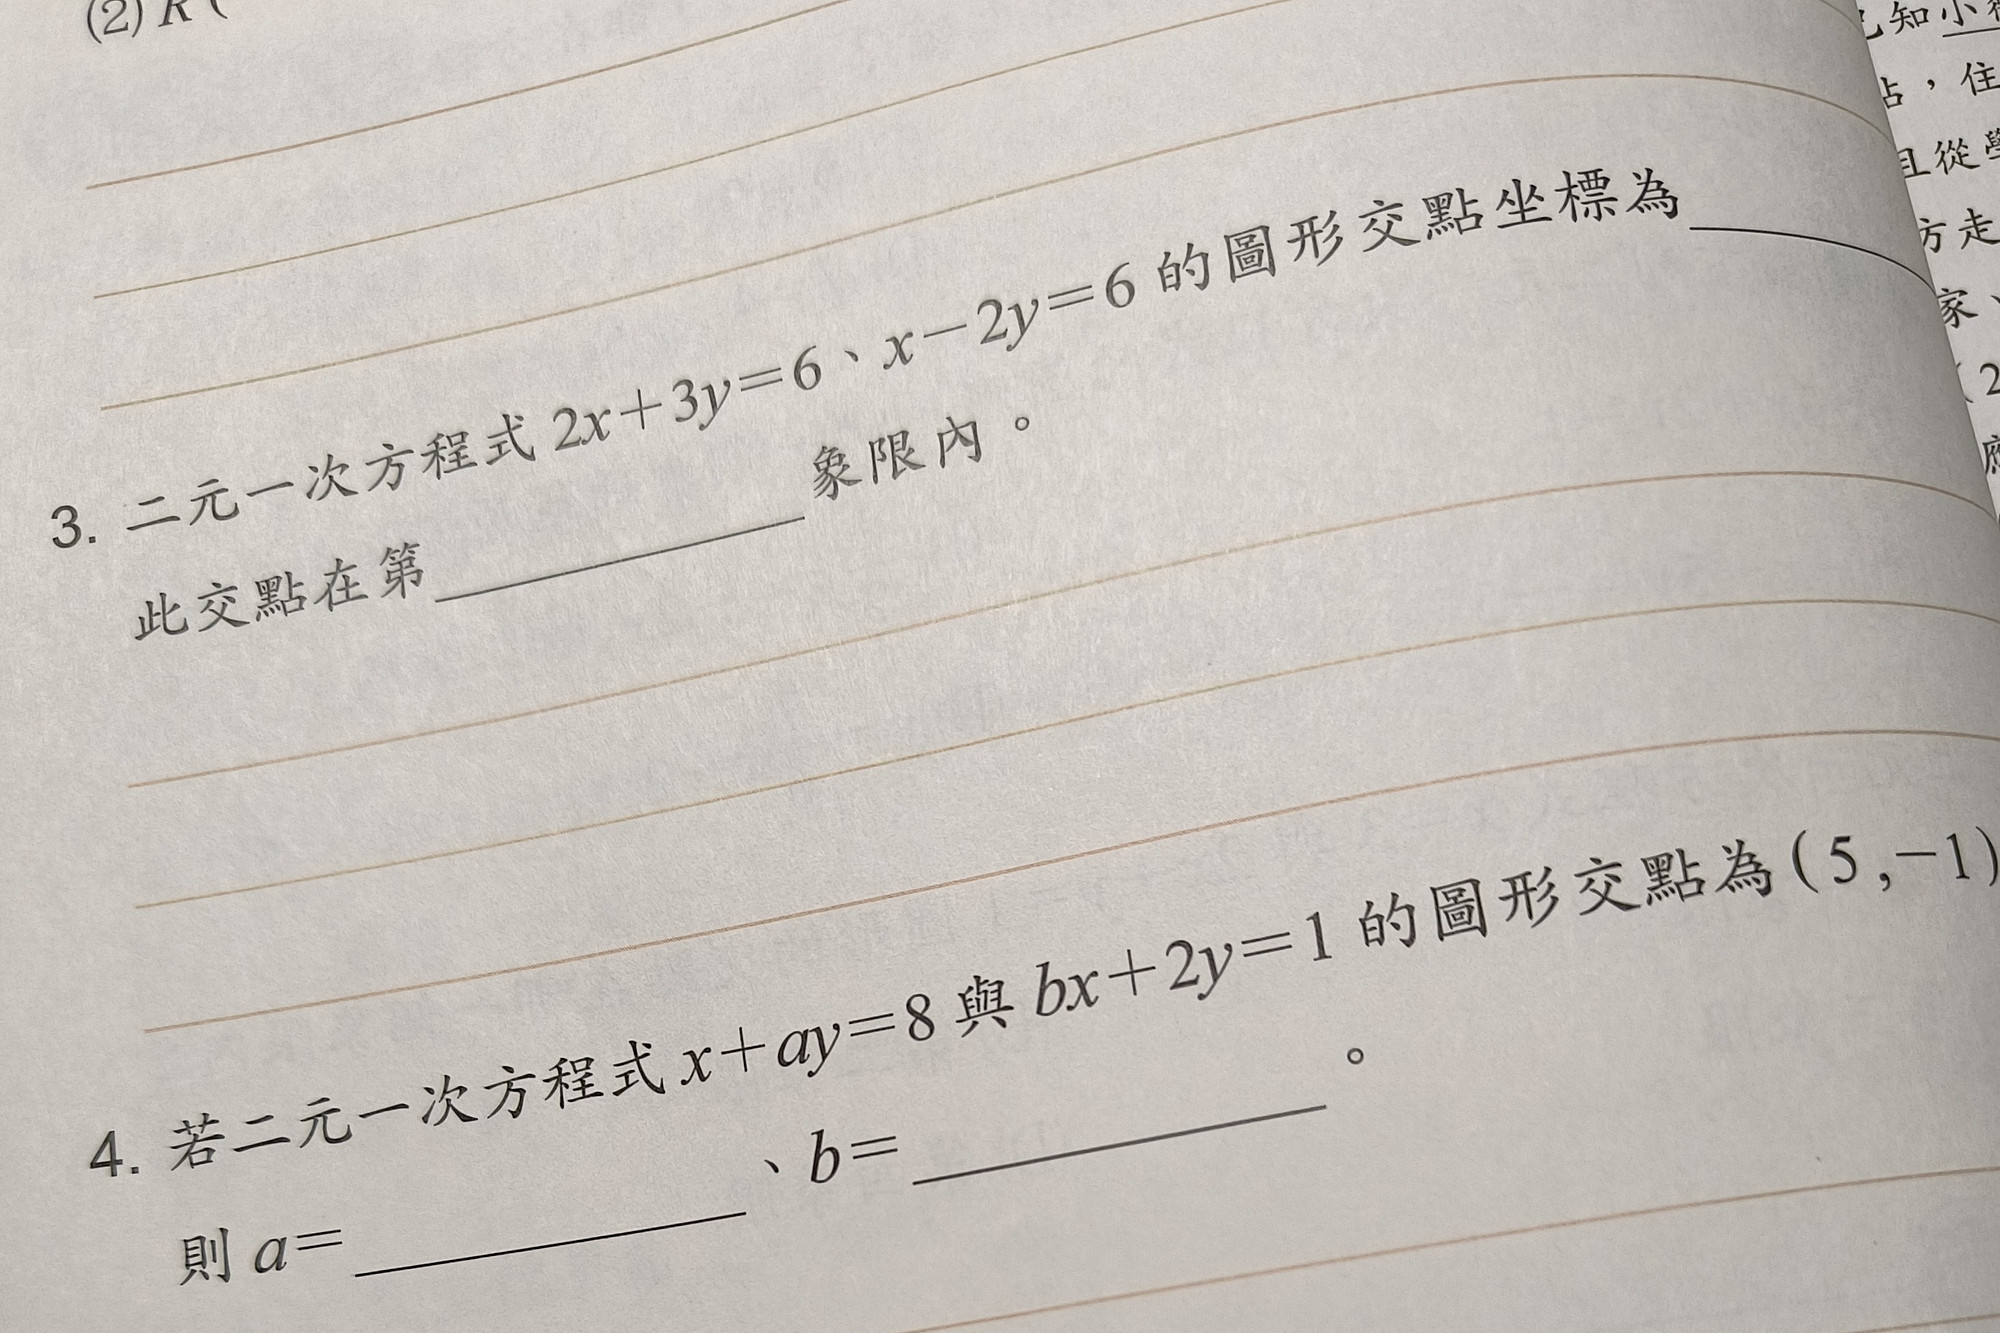 (2) R (
3. 二元一次方程式 2x+3y=6、x−2y=6 的圖形交點坐標為
此交點在第 象限內。
4. 若二元一次方程式 x+ay=8 與 bx+2y=1 的圖形交點為(5,−1)
則 a= 、b= 。
知小
點,住
且從學
方走
家、
(2
應